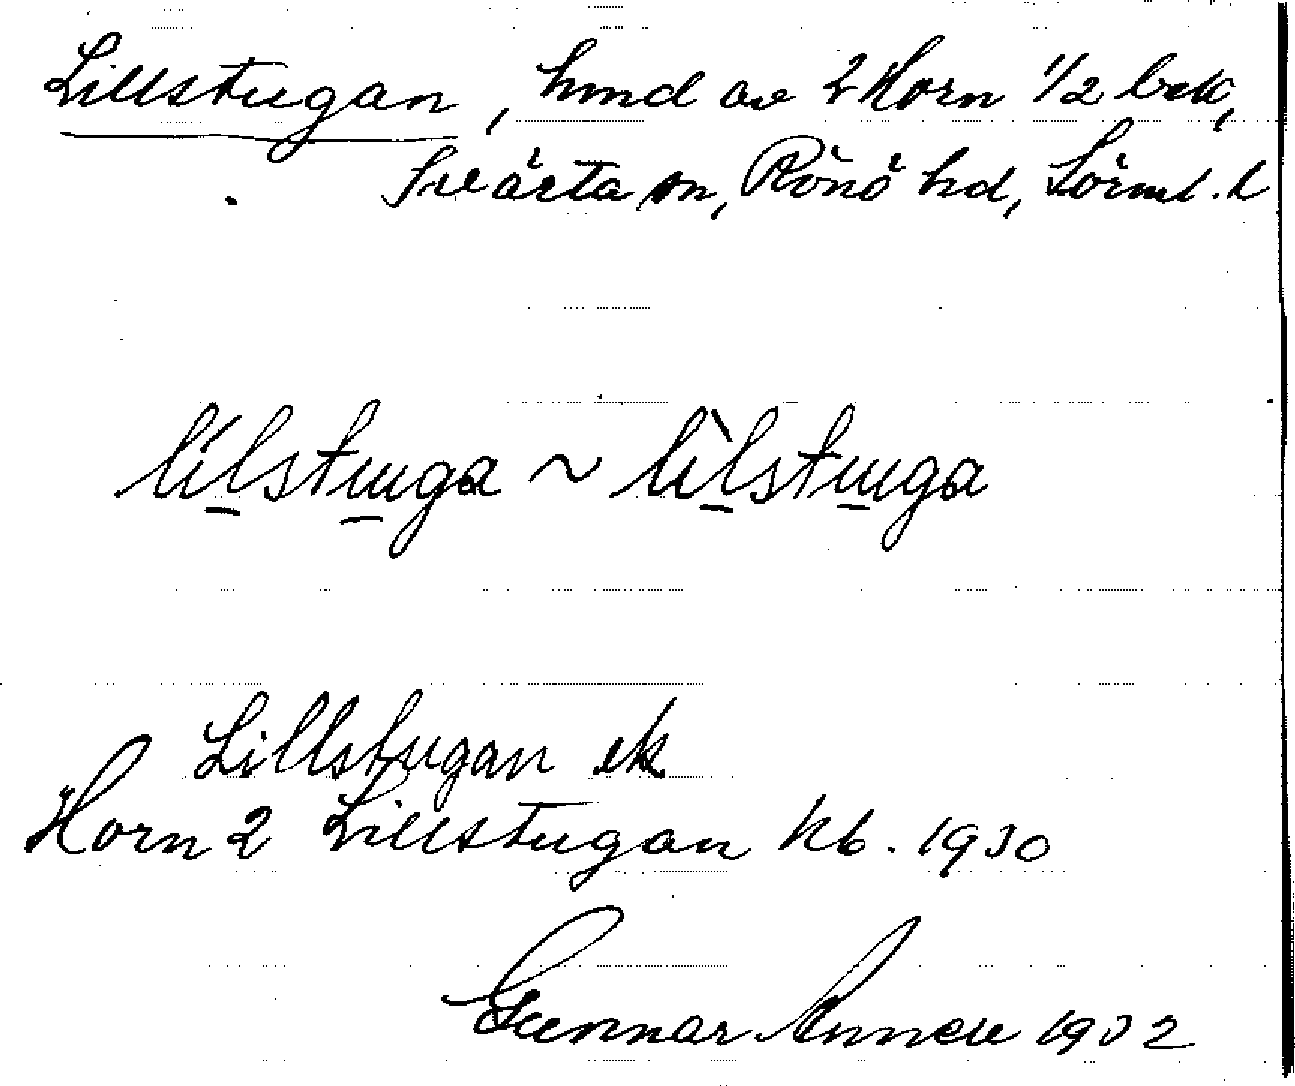 Lillstugan, hmd av 2 Horn 1/2 bek,
Svärta sn, Rönö hd, Sörml. l
lílstuga ~ lìlstuga
Lillstugan ek
Horn 2 Lillstugan kb. 1930
Gunnar Annell 1932